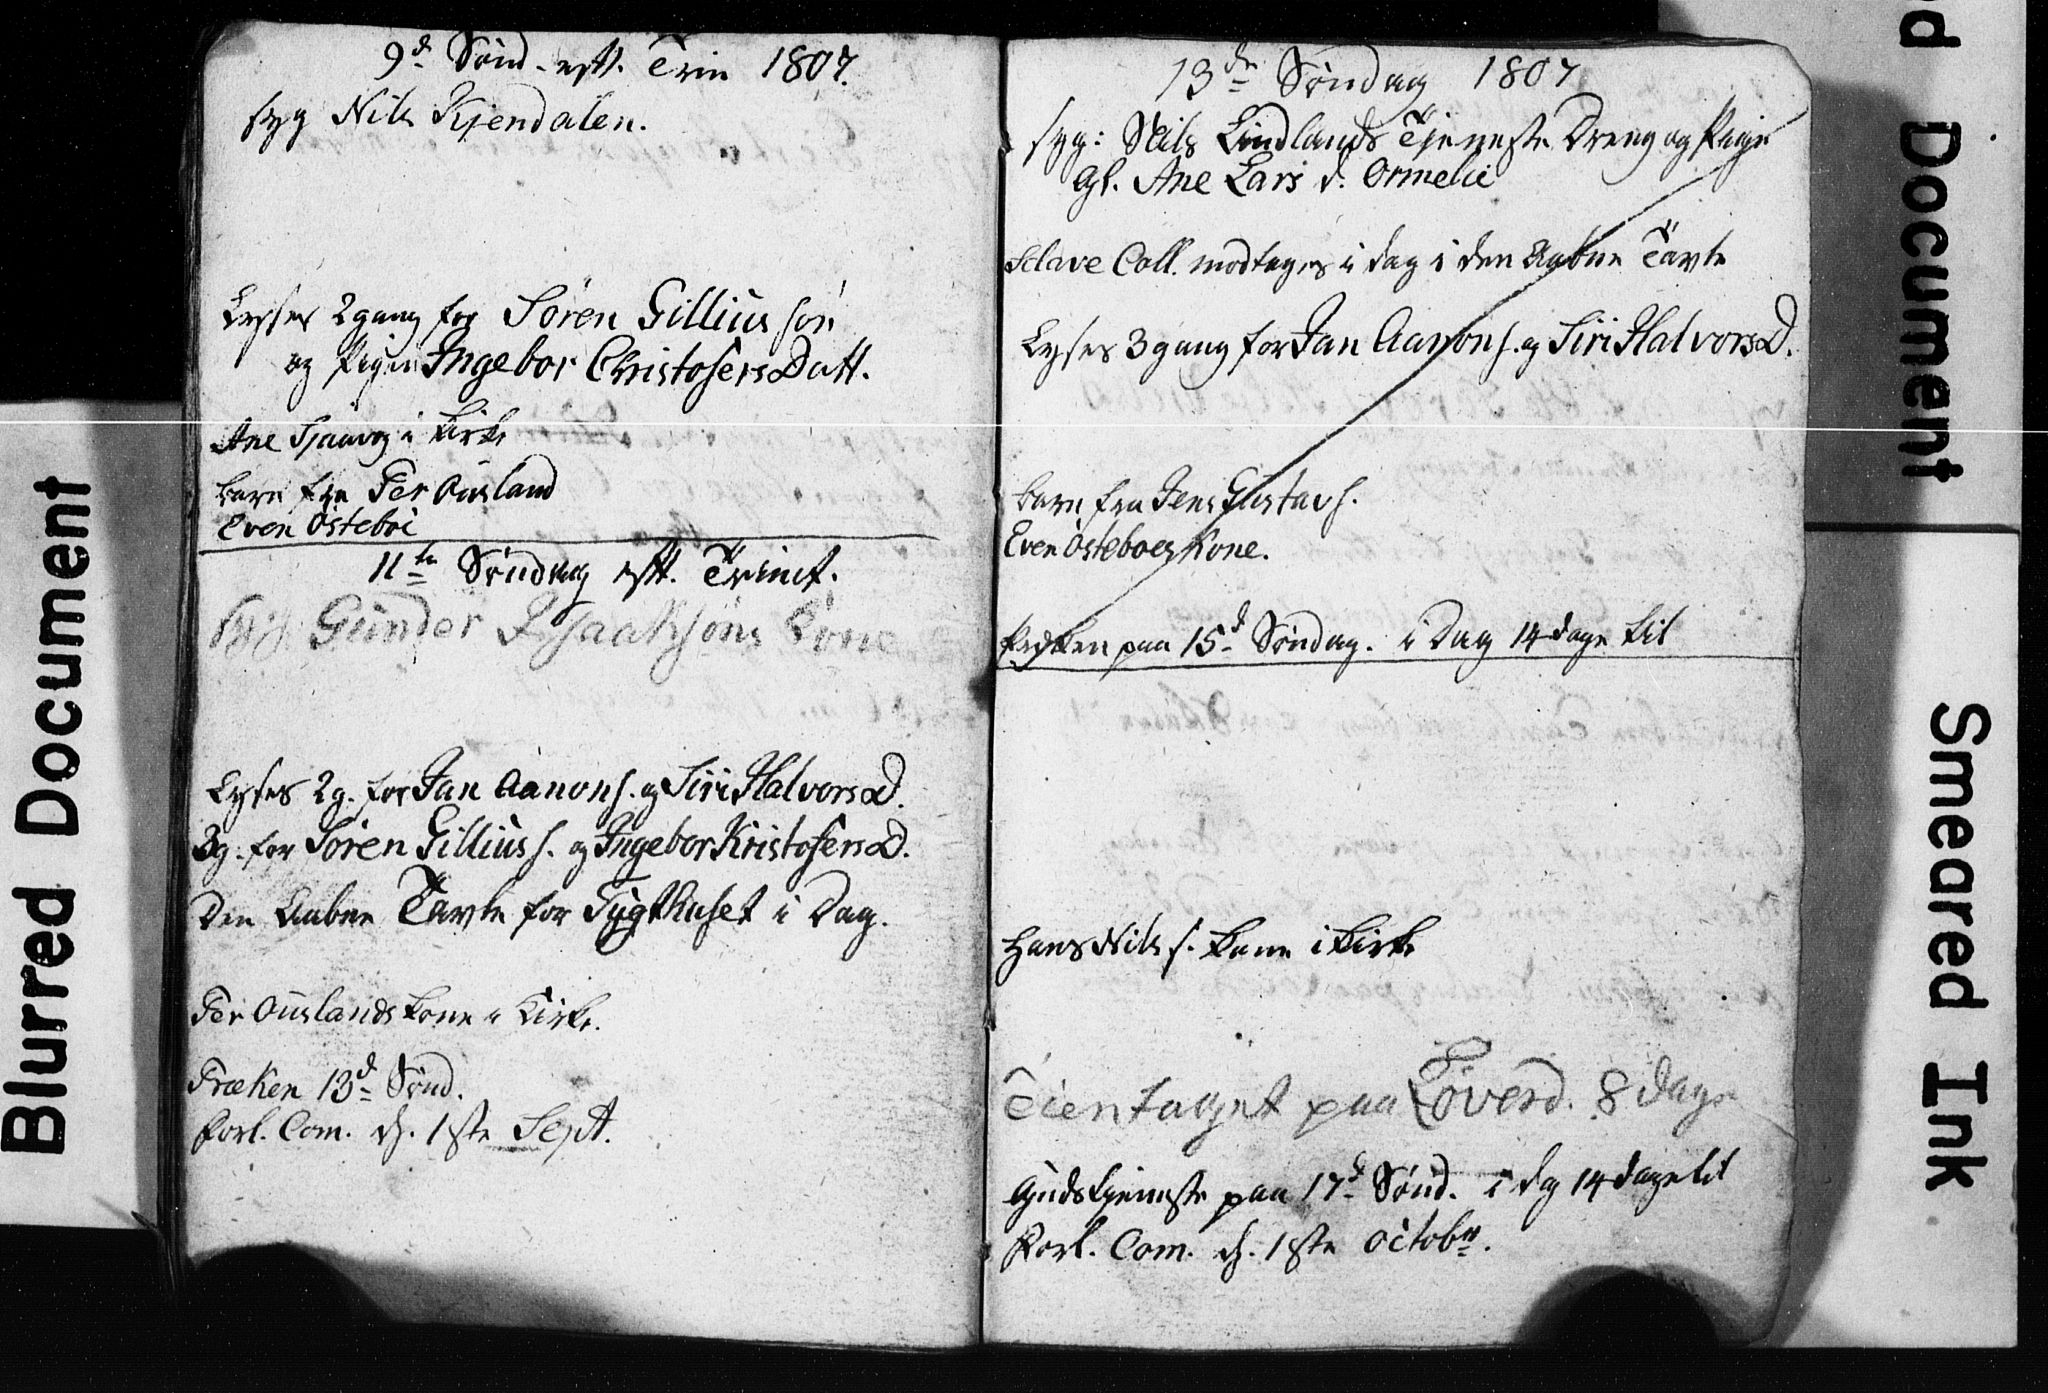 9d Sönd. eft. Trin 1807.
syg Nils Kjendalen.
Lyses 2 gang for Sören Gilliussön
og Pigen Ingebor ChristofersDatt.
Ane Tjaavog i Kirke
barn fra Per Ousland
Even Östeboe
11te Söndag eft. Trinit.
syg. Gunder Isaaksöns Kone
Lyses 2 g. for Jan Aanons. og Siri HalvorsD.
3 g. for Sören Gilliuss. og Ingebor KristofersD.
Den Aabne Tavle for Tugthuset i Dag.
Per Ouslands kone i Kirke.
Præken 13d Sönd.
Forl. Com. d. 1ste Sept.
13de Söndag 1807
syg: Nils Lindlands Tjeneste Dreng og Pige
Gl. Ane Lars d. Ormelie
Sclave Coll. modtages i dag i den Aabne Tavle
Lyses 3 gang for Jan Aanons. og Siri HalvorsD.
barn fra Jens Gustavs.
Even Östeboes Kone.
Præken paa 15d Söndag. i Dag 14 dage til
Hans Nils s. kone i Kirke
Tientaget paa Löverd. 8 dage
Gudstjeneste paa 17d Sönd. i dag 14 dage til
Forl. Com. d. 1ste Octobr.
Blurred Document
Document
Smeared Ink